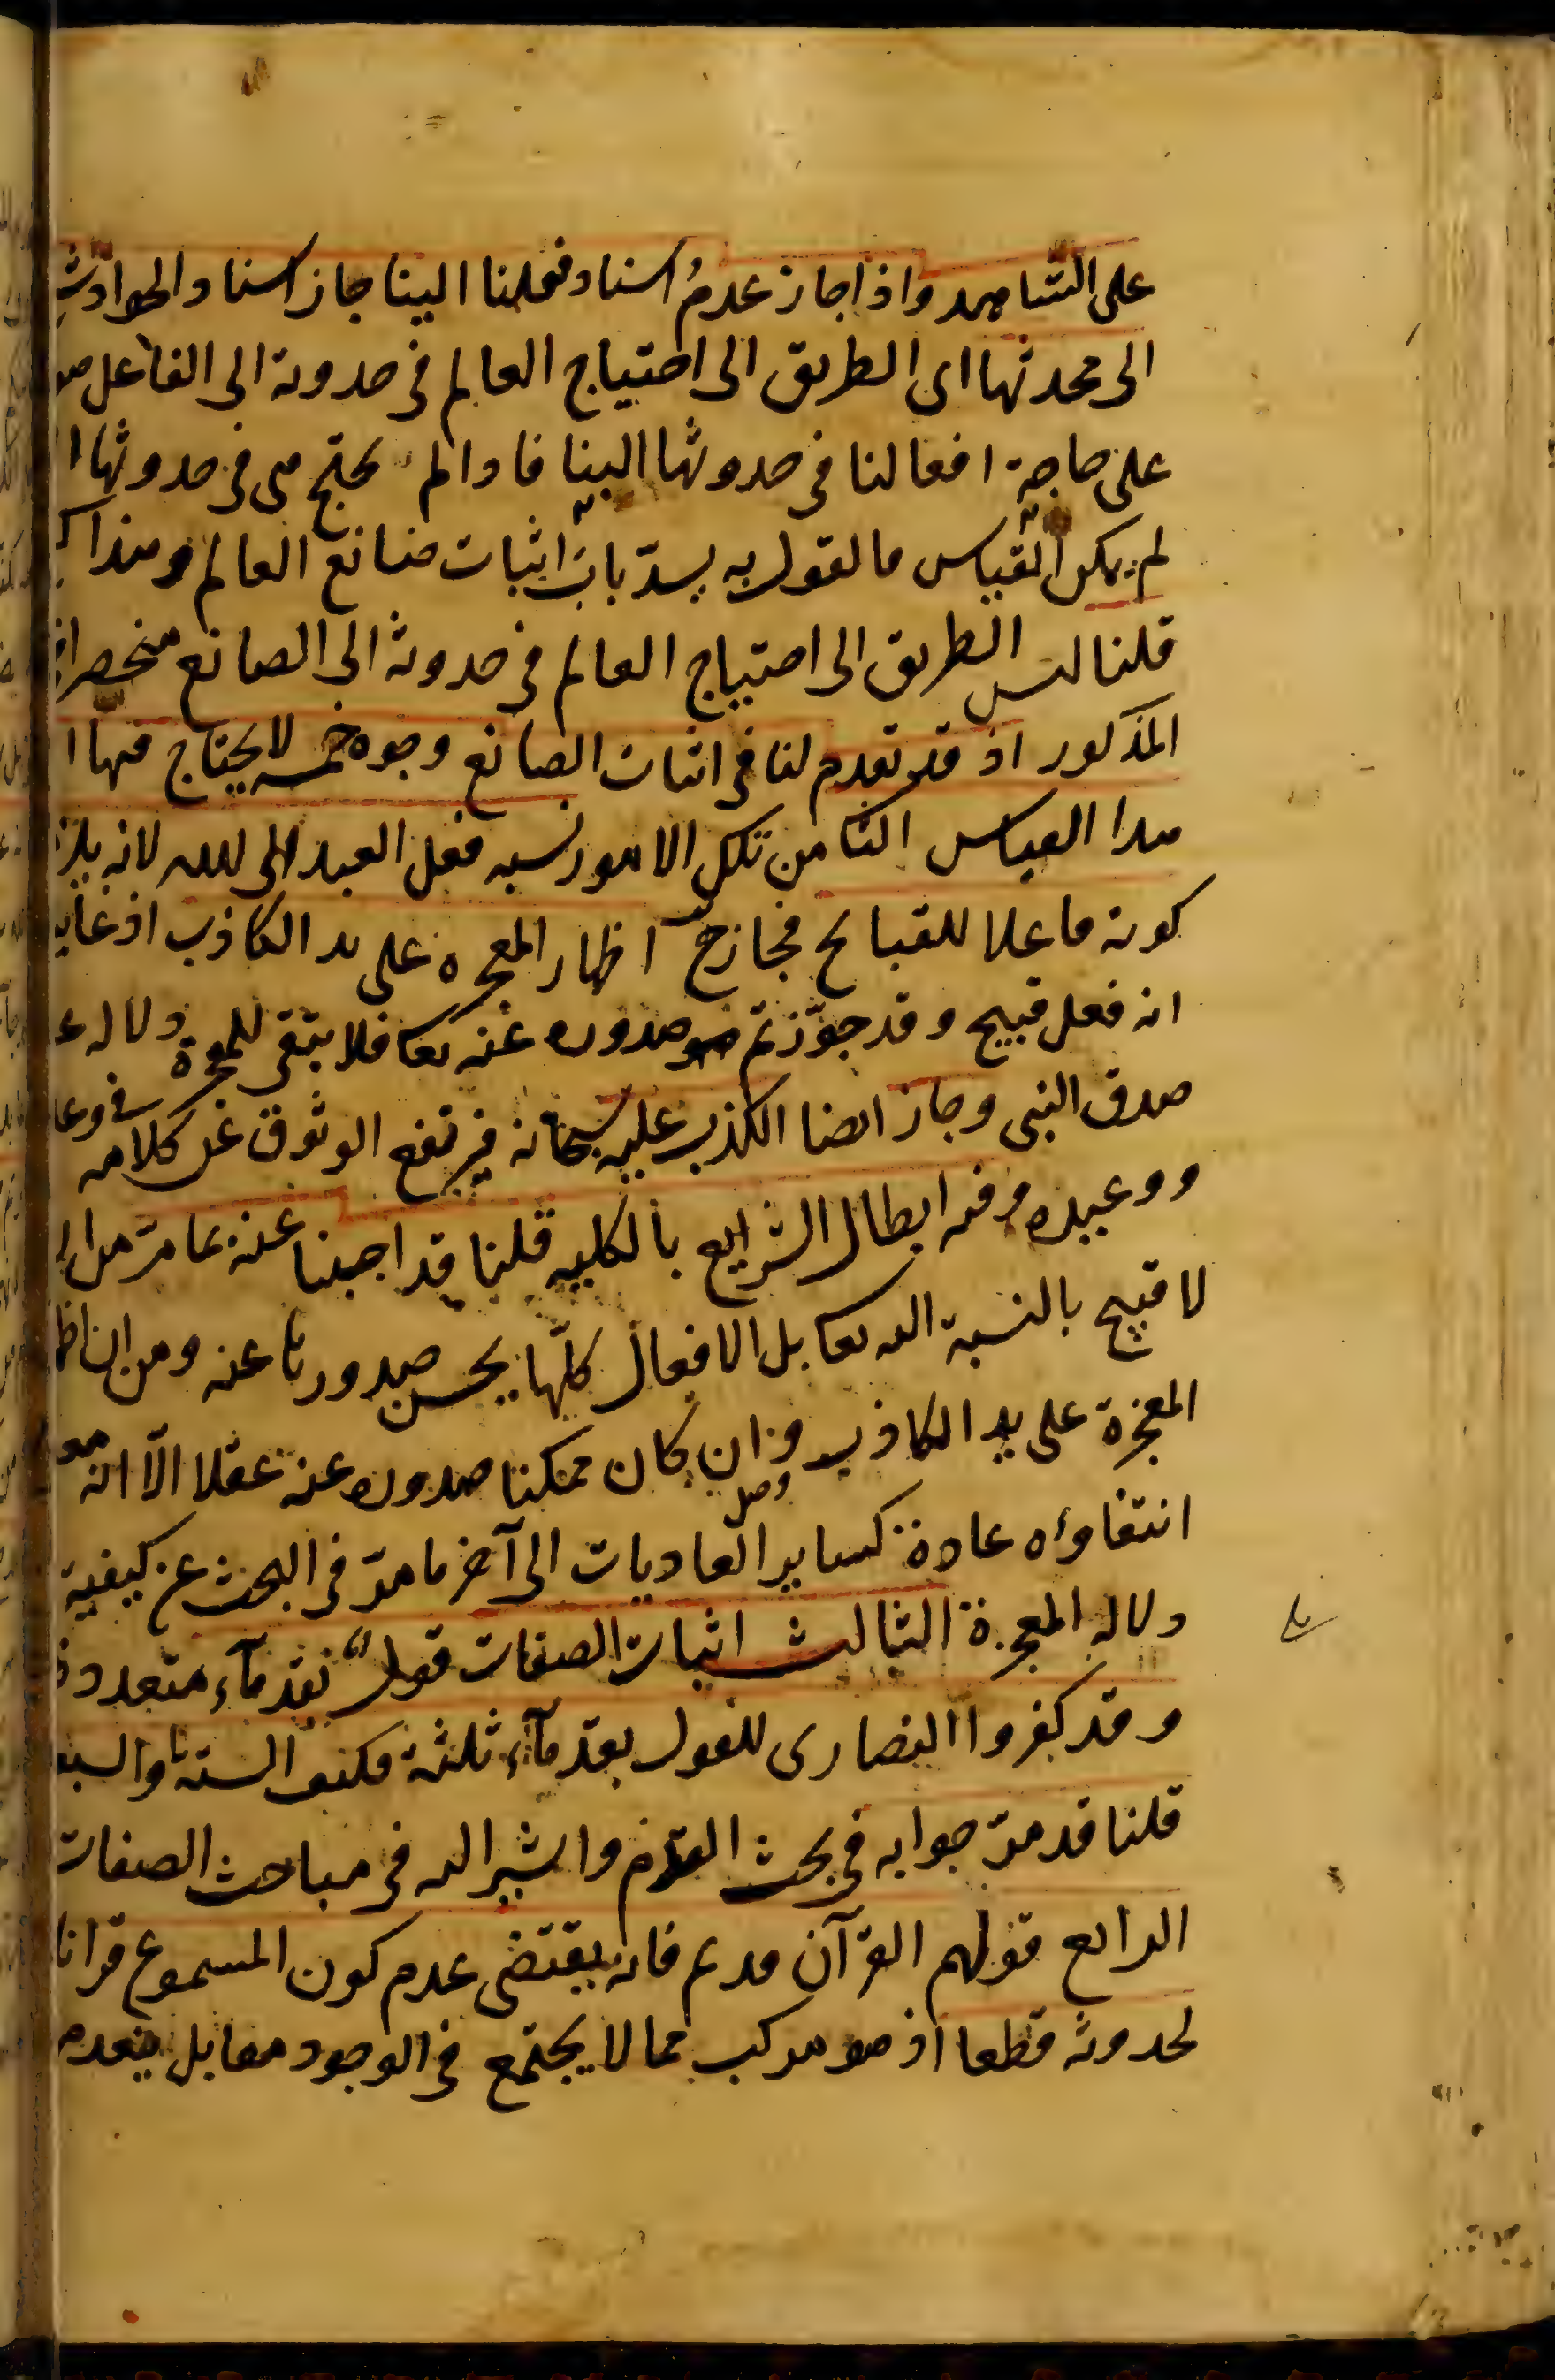 على الشاهد واذا جاز عدمُ اسناد فعلنا الينا جاز اسناد الحوادث
الى محدثها اى الطريق الى احتياج العالم فى حدوثه الى الفاعل هو
على حاجة افعالنا فى حدوثها الينا فاذا لم يحتج هى فى حدوثها ا
لم يمكن القياس فالقول به يسدّ باب اثبات صانع العالم وهذا
قلنا ليس الطريق الى احتياج العالم فى حدوثه الى الصانع منحصرا
المذكور اذ قد تقدم لنا فى اثبات الصانع وجوه خمسه لا يحتاج فيها ا
هذا القياس الثامن تلك الامور نسبه فعل العبد الى الله لانه يلز
كونه فاعلا للقبايح فجاز ح اظهار المعجزه على يد الكاذب اذ غايه
انه فعل قبيح وقد جوّزتم صدوره عنه تعا فلا يبقى للمعجزة دلاله ع
صدق النبى وجاز ايضا الكذب عليه سبحانه فيرتفع الوثوق عن كلامه فى وعد
ووعيده وفيه ابطال الشرايع بالكليه قلنا قد اجبنا عنه بما مرّ من
لا قبيح بالنسبة اليه تعا بل الافعال كلّها يحسن صدورها عنه ومن ان اظ
المعجزة على يد الكاذب وان كان ممكنا صدوره عنه عقلا الّا انه معلو
انتفاؤه عادة كساير العاديات الى آخر ما مرّ فى البحث عن كيفية
دلاله المعجزة الثالث اثبات الصفات قول بقدمآء متعددة
وقد كفروا النصارى للقول بقدمآء ثلثة فكيف الستة والسبع
قلنا قد مرّ جوابه فى بحث القدم واشير اليه فى مباحث الصفات
الرابع قولهم القرآن قديم فانه يقتضى عدم كون المسموع قرانا
لحدوثه قطعا اذ هو مركب مما لا يجتمع فى الوجود معا بل ينعدم